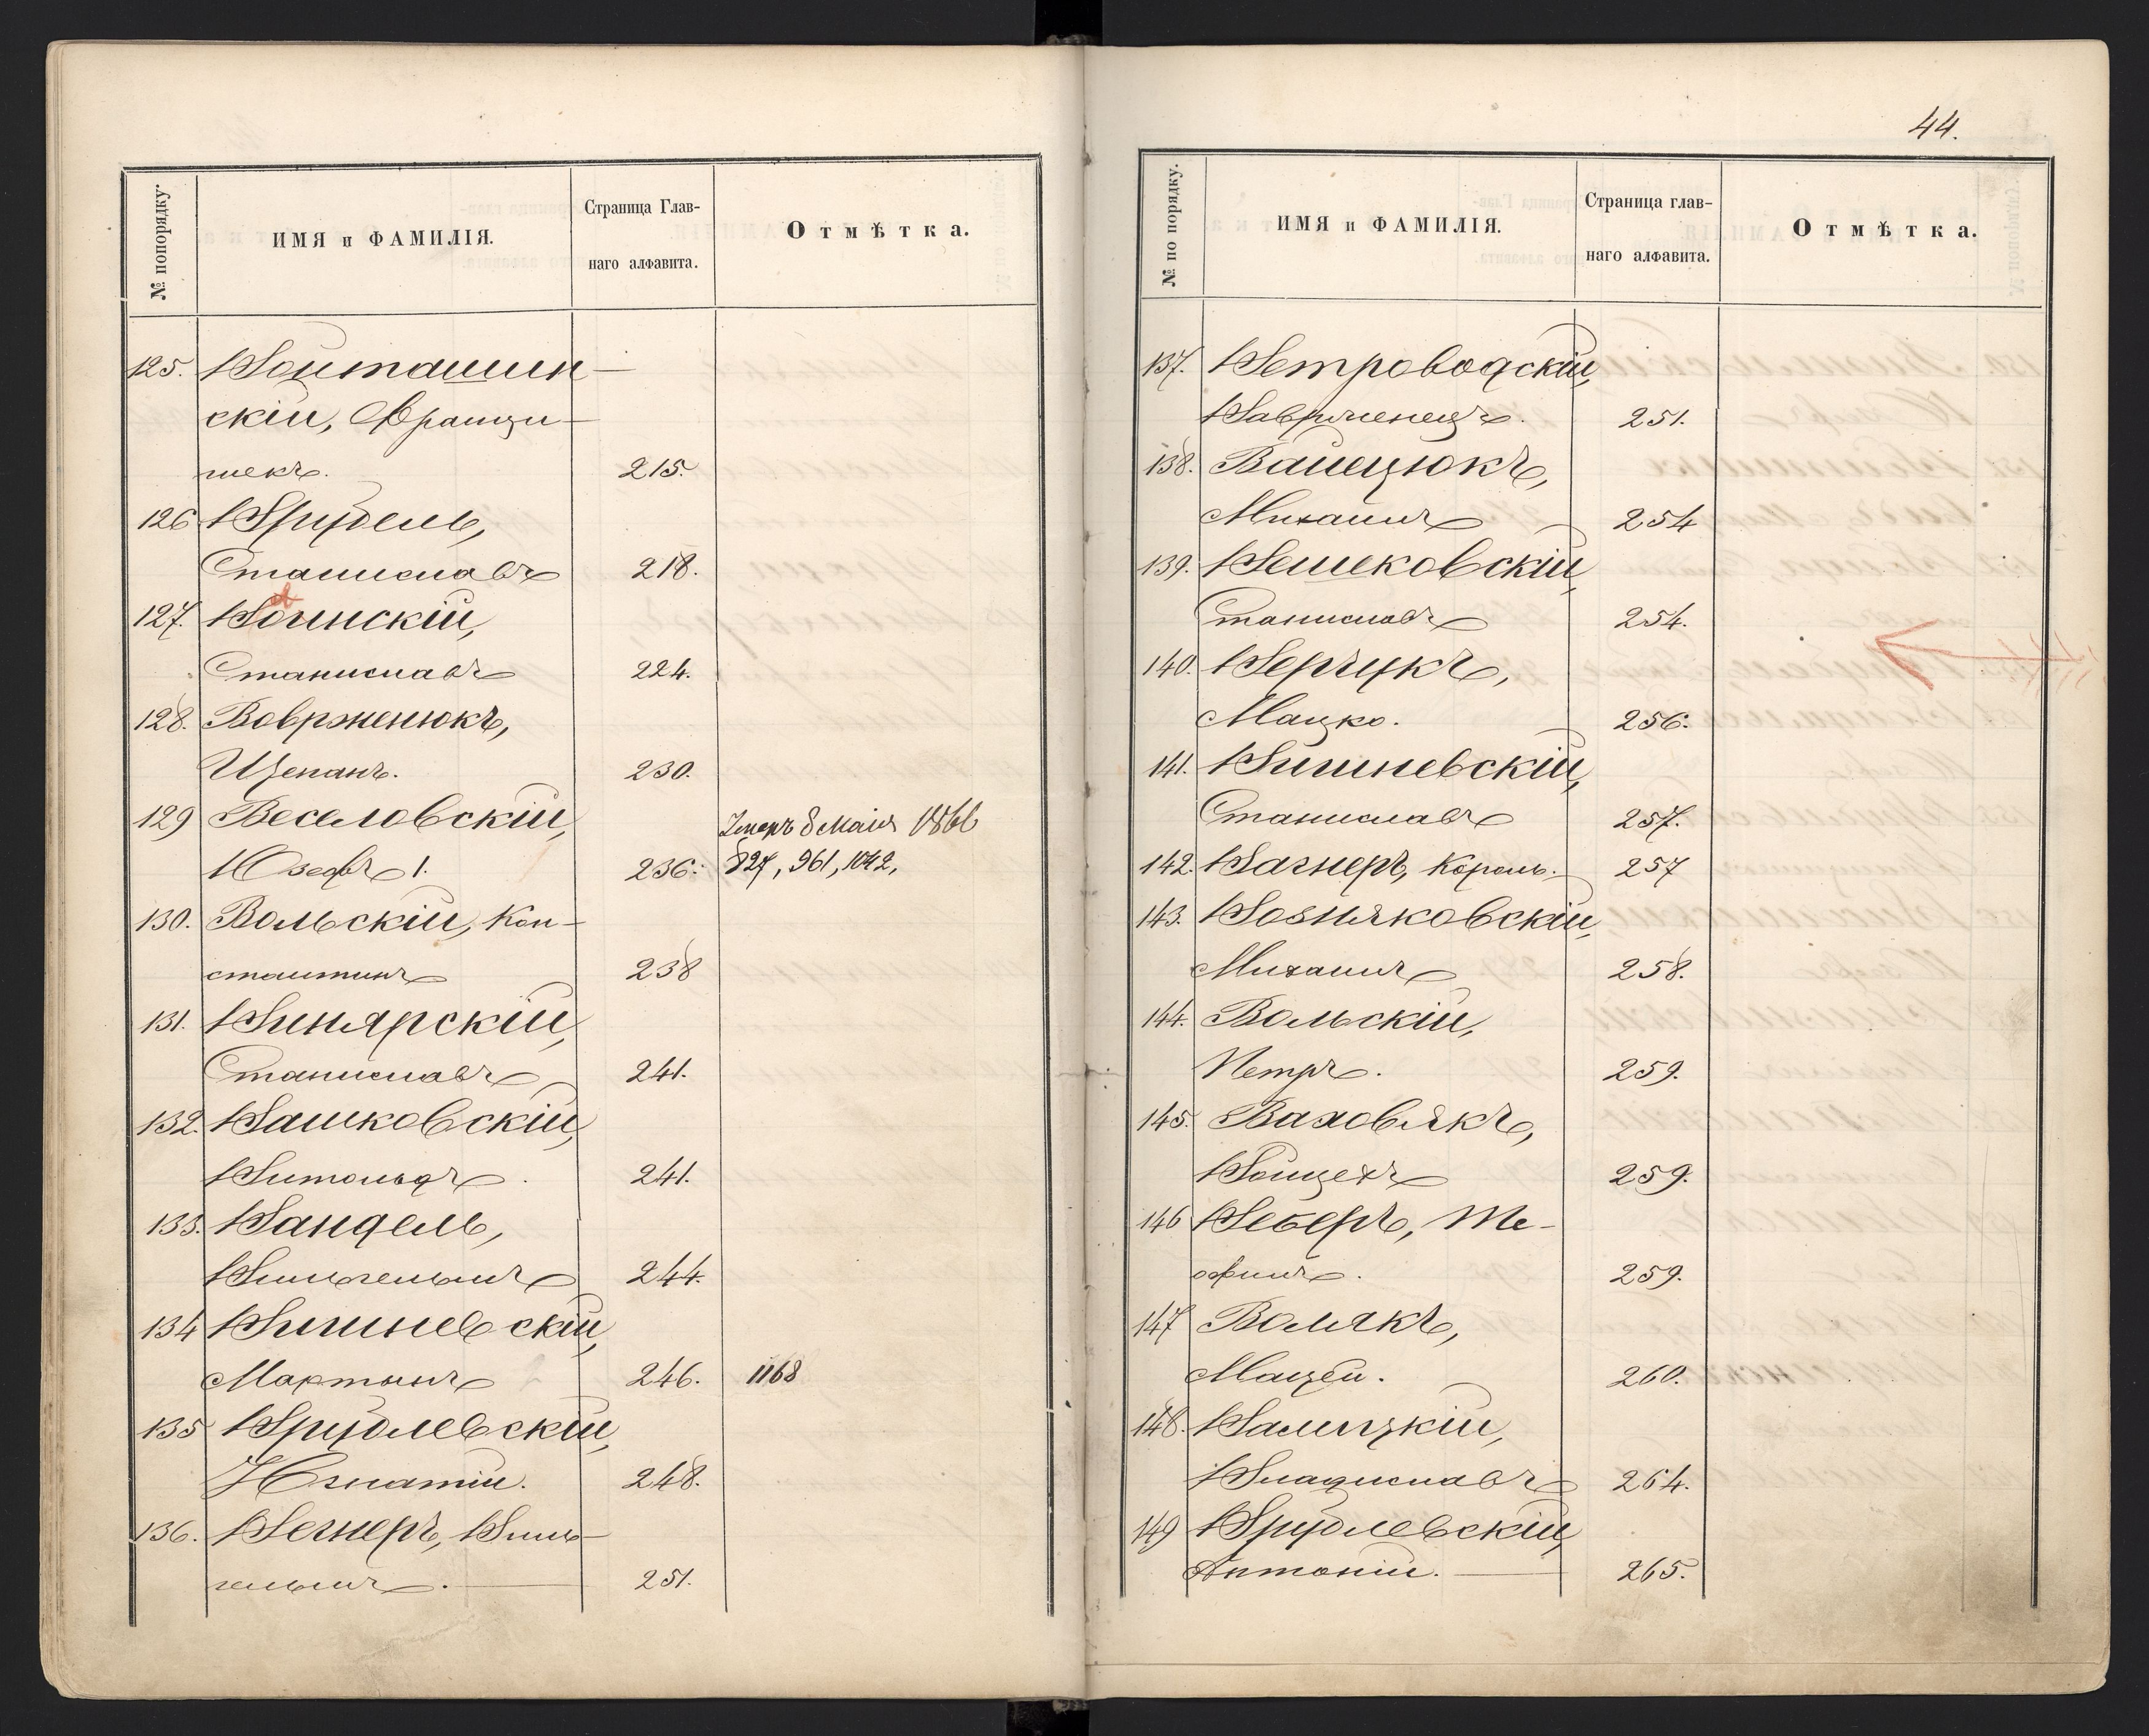 № попорядку.
ИМЯ и ФАМИЛІЯ.
Страница Глав-
наго алфавита.
Отмѣтка.
125. Войташин-
скій, Францы-
шекъ. 215.
126 Врубель,
Станиславъ 218.
127. Вогинскій,
Станиславъ 224.
128. Вавржнюкъ,
Щепанъ. 230.
129 Веселовскій, Умеръ 8 мая 1866
Юзефъ 1. 236. 827, 961, 1042,
130. Вольскій, Кон-
стантинъ 238
131. Винярскій,
Станиславъ 241.
132. Вашковскій,
Витольдъ 241.
133. Вандель,
Вильгельмъ 244.
134 Вишневскій,
Мартынъ 246. 1168
135 Врублевскій,
Игнатій. 248.
136. Вегнеръ, Виль-
гельмъ. 251.
44.
№ по порядку.
ИМЯ и ФАМИЛІЯ.
Страница глав-
наго алфавита.
Отмѣтка.
137. Ветроводскій,
251.
138. Вайецюкъ,
Михаилъ 254
139. Вешековскій,
Станиславъ 254.
140.
Мацко. 256.
141. Вишневскій,
Станиславъ 257.
142. Вагнеръ, Кароль. 257
143. Возняковскій,
Михаилъ 258.
144. Вольскій,
Петръ. 259.
145.Ваховякъ,
Войцехъ 259.
146 Веберъ, Те-
офилъ. 259.
147 Волякъ,
Мацей. 260.
148. Валицкій,
Владиславъ 264.
149 Врублевскій,
Антоній. 265.